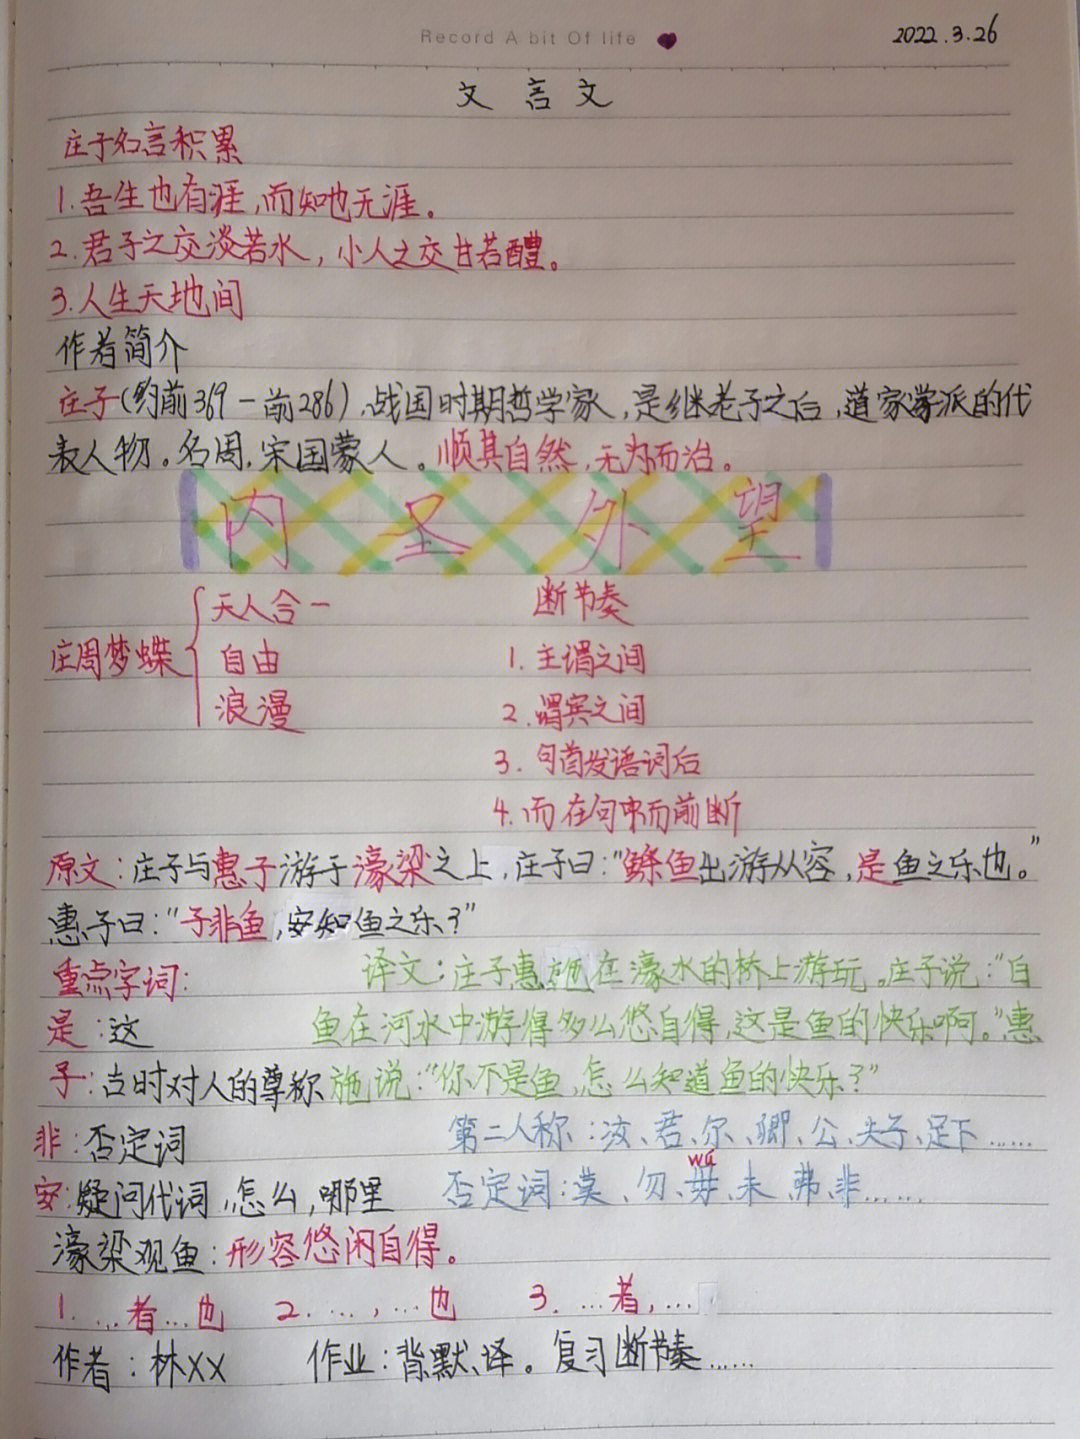 Record A bit Of life
2022.3.26
文言文
庄子名言积累
1.吾生也有涯,而知也无涯。
2.君子之交淡若水,小人之交甘若醴。
3.人生天地间
作者简介
庄子(约前369-前286),战国时期哲学家,是继老子之后,道家学派的代
表人物。名周,宋国蒙人。顺其自然,无为而治。
内圣外望
庄周梦蝶
天人合一
自由
浪漫
断节奏
1.主谓之间
2.谓宾之间
3.句首发语词后
4.而在句中而前断
原文:庄子与惠子游于濠梁之上,庄子曰:"鲦鱼出游从容,是鱼之乐也。"
惠子曰:"子非鱼,安知鱼之乐?"
重点字词:
译文:庄子惠施在濠水的桥上游玩。庄子说:"白
是:这
鱼在河水中游得多么悠自得,这是鱼的快乐啊。"惠
子:古时对人的尊称
施说:"你不是鱼,怎么知道鱼的快乐?"
非:否定词
第二人称:汝、君、尔、卿、公、夫子、足下……
wú
安:疑问代词,怎么,哪里
否定词:莫、勿、毋、未、弗、非……
濠梁观鱼:形容悠闲自得。
1. …者…也 2. …,…也 3. …者,…
作者:林XX 作业:背默、译。复习断节奏……